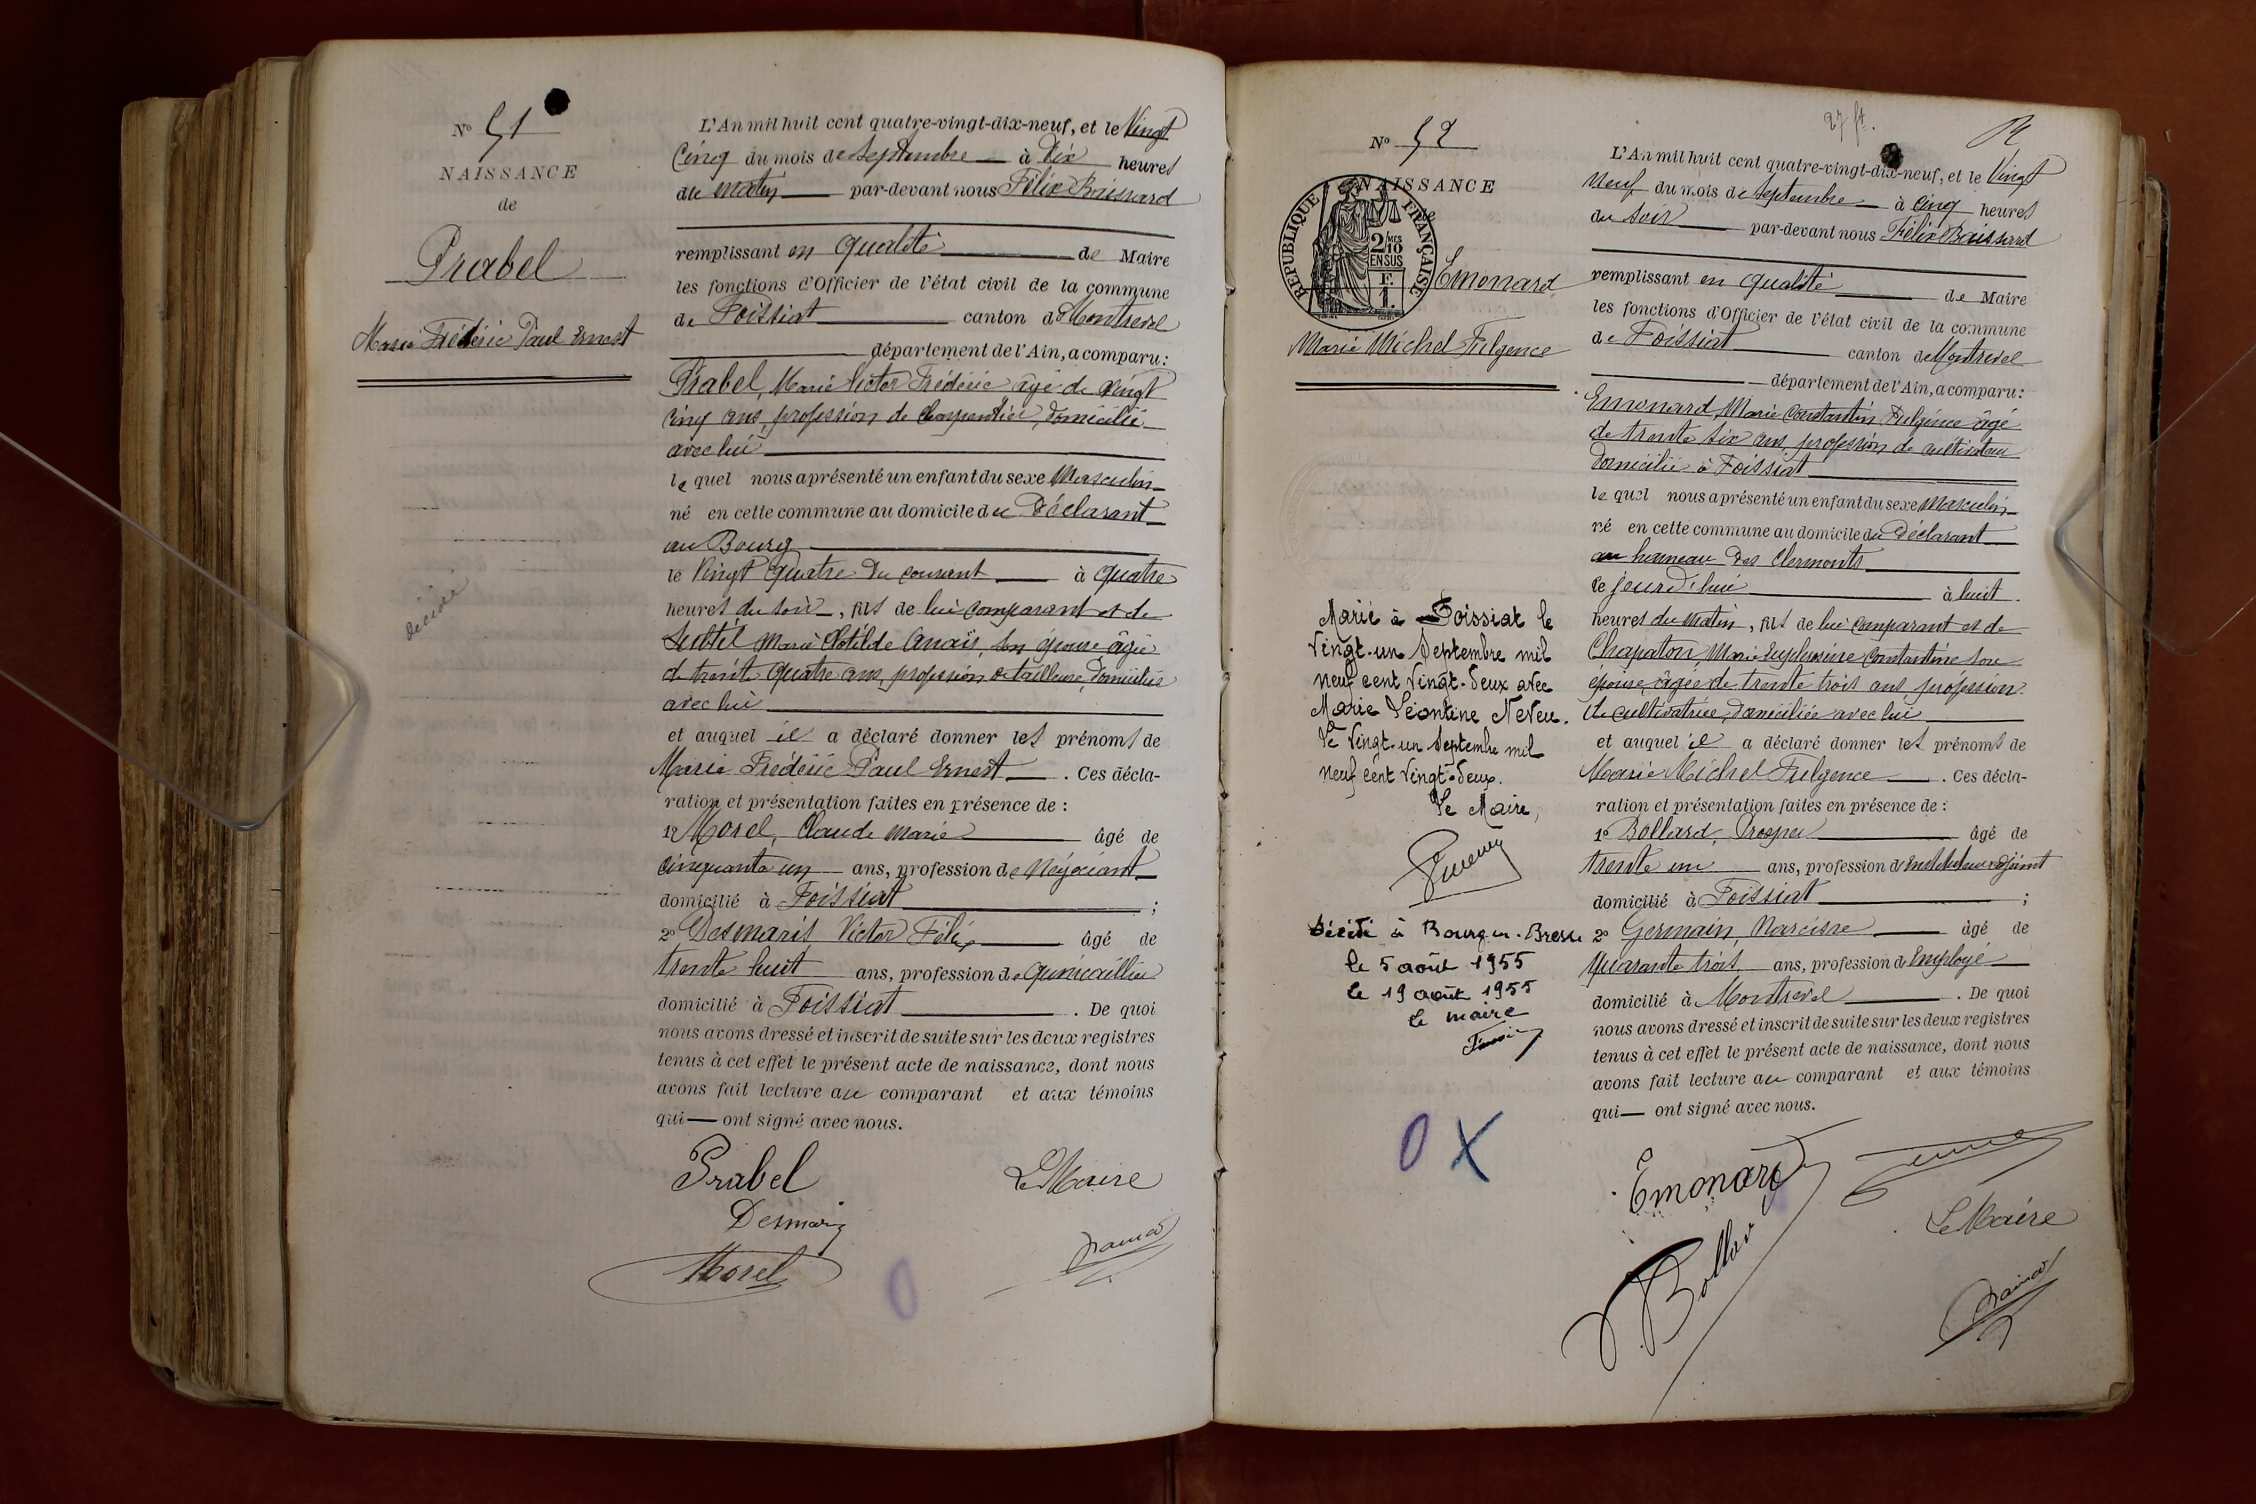 N° 51
NAISSANCE
de
Prabel
Marie Frédéric Paul Ernest
décédé
L'An mil huit cent quatre-vingt-dix-neuf, et le Vingt
Cinq du mois de Septembre à Dix heures
du matin par-devant nous Félix Baissard
remplissant en qualité de Maire
les fonctions d'Officier de l'état civil de la commune
de Foissiat canton de Montrevel
département de l'Ain, a comparu:
Prabel, Marie Victor Frédéric âgé de Vingt
Cinq ans, profession de Charpentier, domicilié
avec lui
le quel nous a présenté un enfant du sexe Masculin
né en cette commune au domicile du Déclarant
au Bourg
le Vingt Quatre du courant à Quatre
heures du soir, fils de lui comparant et de
Marie Clotilde Anaïs, son épouse âgée
de trente quatre ans, profession de tailleuse, domiciliée
avec lui
et auquel il a déclaré donner les prénoms de
Marie Frédéric Paul Ernest. Ces décla-
ration et présentation faites en présence de :
1° Morel, Claude Marie âgé de
cinquante un ans, profession de Négociant
domicilié à Foissiat ;
2° Desmaris Victor Félix âgé de
trente huit ans, profession de Quincaillier
domicilié à Foissiat. De quoi
nous avons dressé et inscrit de suite sur les deux registres
tenus à cet effet le présent acte de naissance, dont nous
avons fait lecture au comparant et aux témoins
qui ont signé avec nous.
Prabel
Le Maire
Desmaris
Morel
O
27 ft.
N° 52
NAISSANCE
RÉPUBLIQUE FRANÇAISE
2/10 EN SUS
F.
1.
Emonard
Marie Michel Fulgence
Marié à Foissiat le
Vingt-un Septembre mil
neuf cent vingt-deux avec
Marie Léontine Neveu.
Le Vingt-un Septembre mil
neuf cent vingt-deux.
Le Maire,
Décédé à Bourg-en-Bresse
le 5 août 1955
le 19 août 1955
le maire
O X
L'An mil huit cent quatre-vingt-dix-neuf, et le Vingt
Neuf du mois de Septembre à Cinq heures
du Soir par-devant nous Félix Baissard
remplissant en qualité de Maire
les fonctions d'Officier de l'état civil de la commune
de Foissiat canton de Montrevel
département de l'Ain, a comparu:
Emonard, Marie Constantin Fulgence âgé
de trente six ans, profession de cultivateur
domicilié à Foissiat
le quel nous a présenté un enfant du sexe Masculin
né en cette commune au domicile du Déclarant
au hameau des Clermonts
le jourd'hui à huit
heures du Matin, fils de lui comparant et de
Chapaton, Marie Euphrosine Constantine son
épouse, âgée de trente trois ans, profession
de cultivatrice, domiciliée avec lui
et auquel il a déclaré donner les prénoms de
Marie Michel Fulgence. Ces décla-
ration et présentation faites en présence de :
1° Bollard, Prosper âgé de
trente un ans, profession d'Instituteur adjoint
domicilié à Foissiat ;
2° Germain, Narcisse âgé de
Quarante trois ans, profession d'Employé
domicilié à Montrevel. De quoi
nous avons dressé et inscrit de suite sur les deux registres
tenus à cet effet le présent acte de naissance, dont nous
avons fait lecture au comparant et aux témoins
qui ont signé avec nous.
Emonard
Le Maire